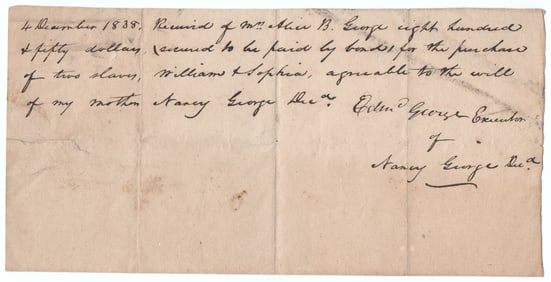 4 December 1838. Received of Mrs Alice B. George eight hundred
& fifty dollars, secured to be paid by bond, for the purchase
of two slaves, William & Sophia, agreable to the will
of my mother Nancy George Decd. Edmd George Executor
of
Nancy George Decd.